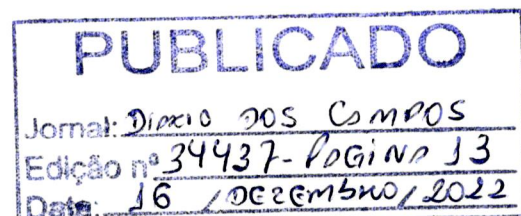 PUBLICADO
Jornal: DIARIO DOS CAMPOS
Edição nº 34437 - PAGINA 13
Data: 16 / DEZEMBRO / 2022